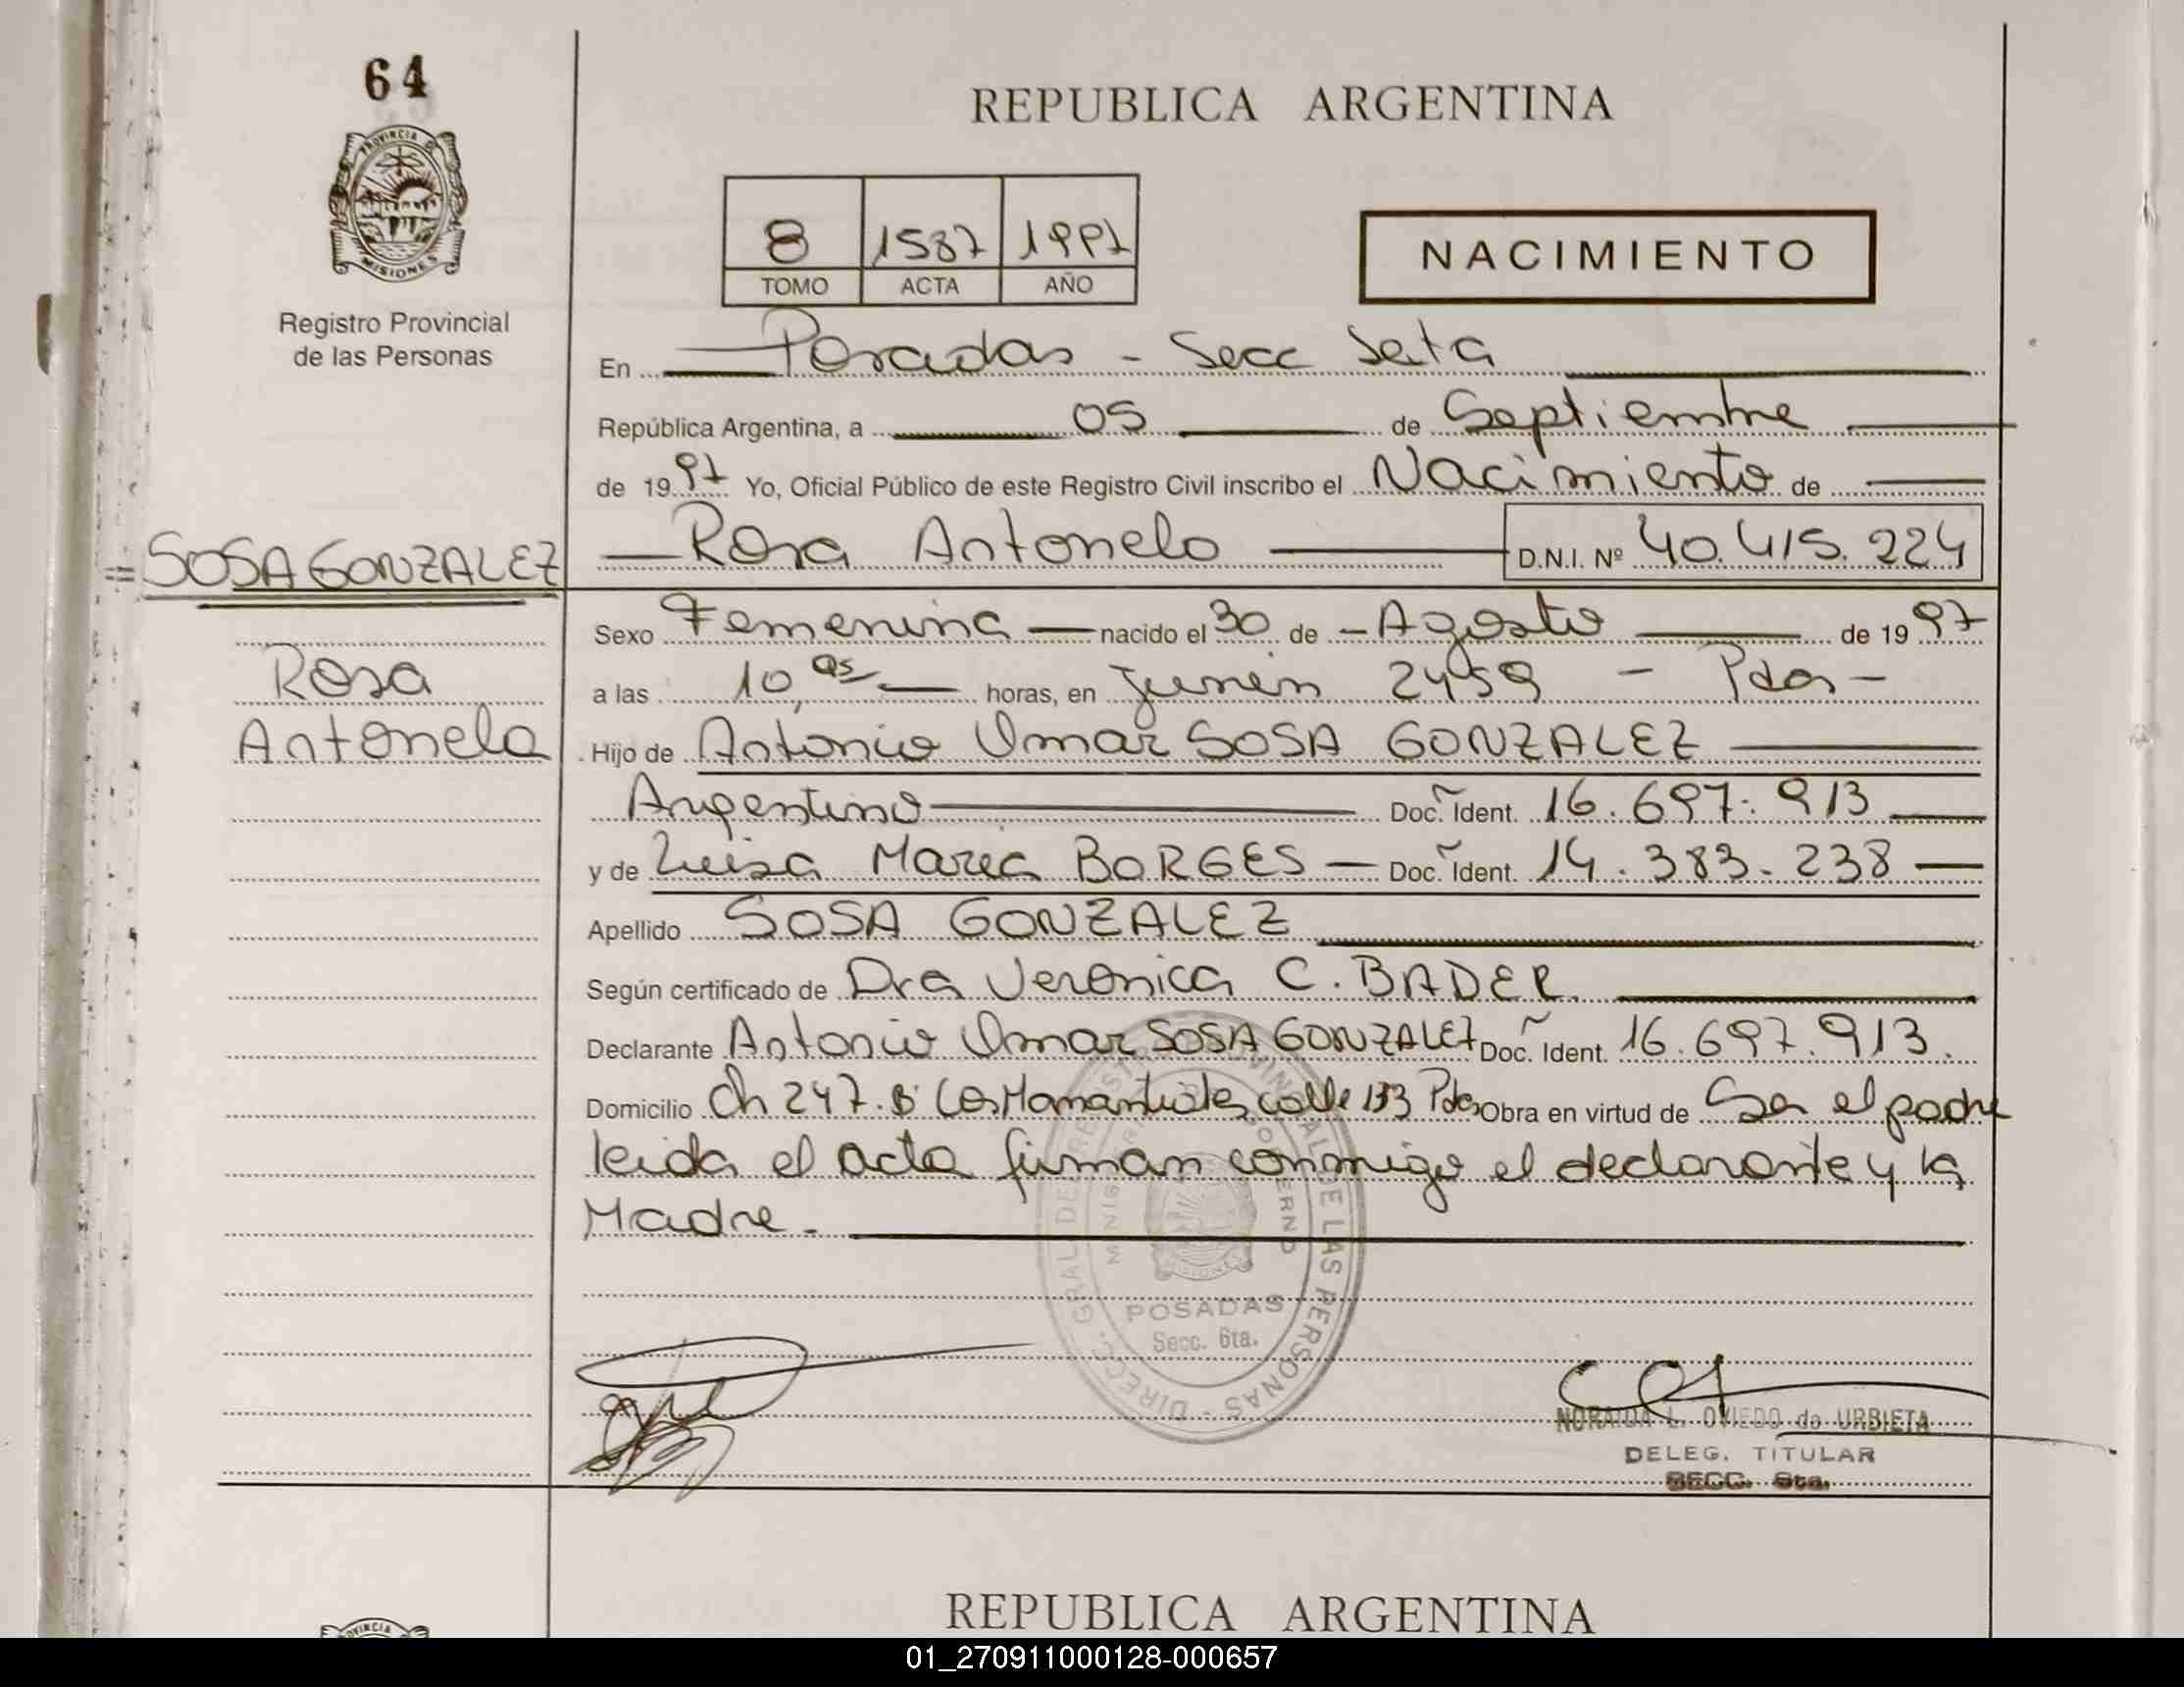 64
REPUBLICA ARGENTINA
PROVINCIA D
MISIONES
Registro Provincial
de las Personas
8 1587 1997
TOMO ACTA AÑO
NACIMIENTO
En Posadas - Secc Sexta
República Argentina, a 05 de Septiembre
de 1997 Yo, Oficial Público de este Registro Civil inscribo el Nacimiento de
Rosa Antonela D.N.I. Nº 40.415.224
= SOSA GONZALEZ
Rosa
Antonela
Sexo Femenina nacido el 30 de - Agosto de 1997
a las 10,05 horas, en Junín 2459 - Pdas -
Hijo de Antonio Omar SOSA GONZALEZ
Argentino Doc. Ident. 16.697.913
y de Luisa Maria BORGES - Doc. Ident. 14.383.238 -
Apellido SOSA GONZALEZ
Según certificado de Dra Veronica C. BADER
Declarante Antonio Omar SOSA GONZALEZ Doc. Ident. 16.697.913.
Domicilio Ch 247. Bº Los Manantiales calle 133 Pdas Obra en virtud de Ser el padre
leida el acta firman conmigo el declarante y la
Madre.
DIRECC. GRAL. DE REGISTRO PROVINCIAL DE LAS PERSONAS
POSADAS
Secc. 6ta.
NORAIDA L. OVIEDO de URBIETA
DELEG. TITULAR
SECC. 6ta.
REPUBLICA ARGENTINA
01_270911000128-000657